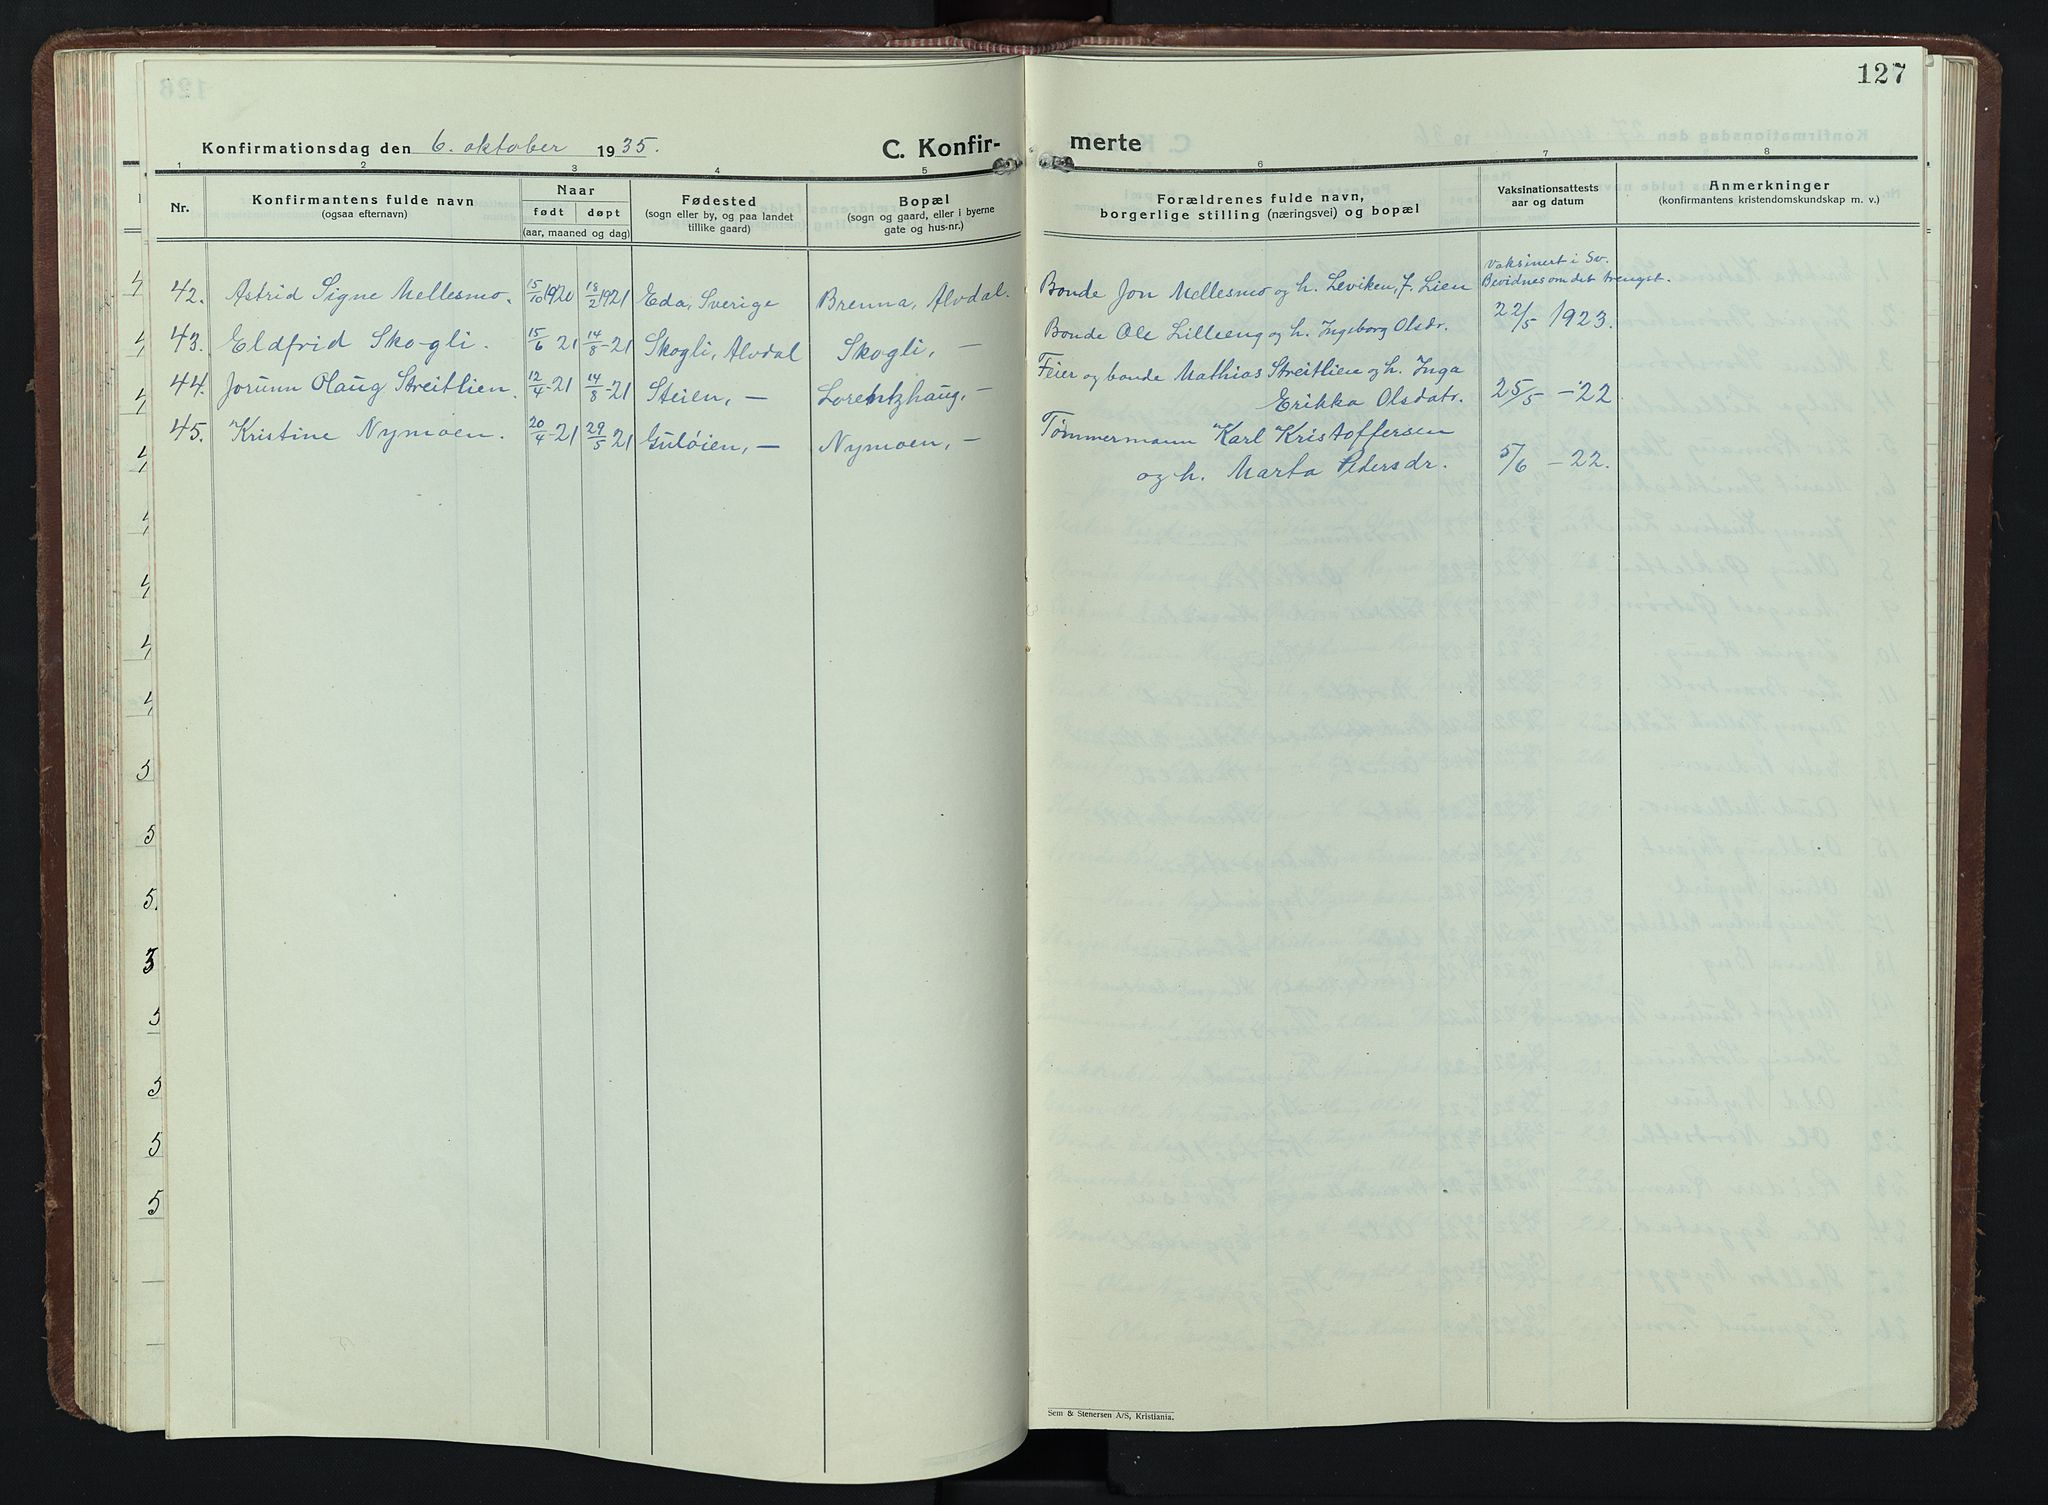 127
Konfirmationsdag den 6. oktober 1935.
C. Konfir-
merte
1 2 3 4 5 6 7 8
Nr.
Konfirmantens fulde navn
(ogsaa efternavn)
Naar
født døpt
(aar, maaned og dag)
Fødested
(sogn eller by, og paa landet
tillike gaard)
Bopæl
(sogn og gaard, eller i byerne
gate og hus-nr.)
Forældrenes fulde navn,
borgerlige stilling (næringsvei) og bopæl
Vaksinationsattests
aar og datum
Anmerkninger
(konfirmantens kristendomskundskap m. v.)
42. Astrid Signe Mellesmo. 15/10 1920 18/2 1921 Eda, Sverige Brenna, Alvdal. Bonde Jon Mellesmo og h. Leviken, f. Lien
Vaksinert i Sv.
Bevidnes om det trengst.
43. Eldfrid Skogli. 15/6-21 14/8-21 Skogli, Alvdal Skogli, — Bonde Ole Lilleeng og h. Ingeborg Olsdr. 22/5 1923.
44. Jorunn Olaug Streitlien. 12/4-21 14/8-21 Steien, — Lorentzhaug, — Feier og bonde Mathias Streitlien og h. Inga
Erikka Olsdatr. 25/5 -22
45. Kristine Nymoen. 20/4-21 29/5-21 Guløien, — Nymoen, — Tømmermann Karl Kristoffersen
og h. Marta Pedersdr. 5/6 -22.
Sem & Stenersen A/S, Kristiania.